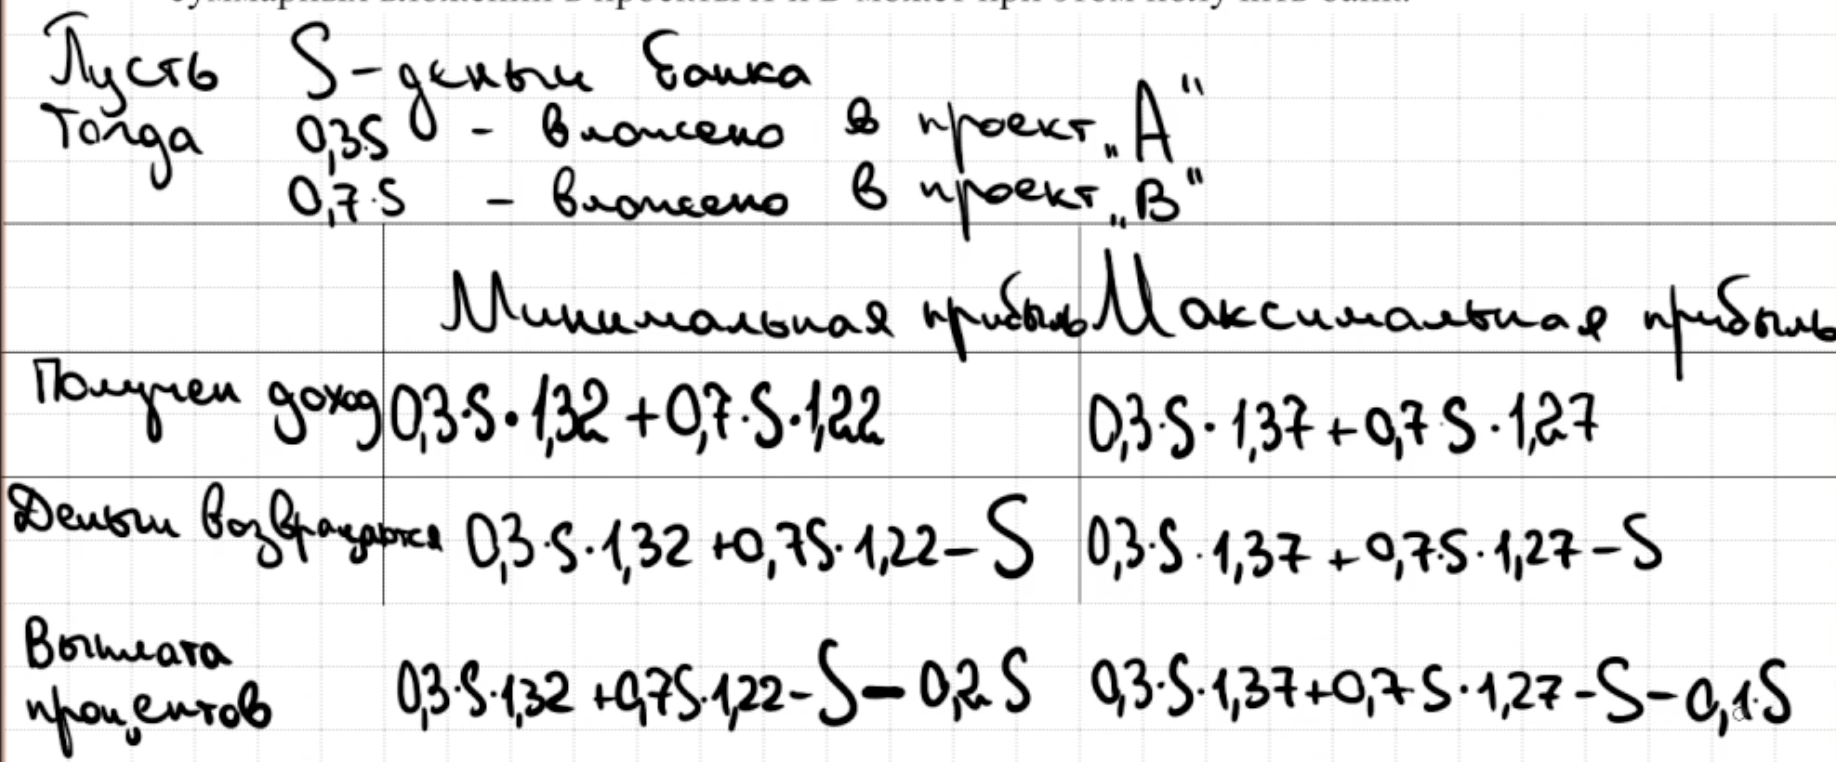 суммарных вложений в проекты А и В может при этом получить банк.
Пусть S - деньги банка
Тогда 0,3S - вложено в проект „А“
0,7·S - вложено в проект „В“
Минимальная прибыль Максимальная прибыль
Получен доход 0,3·S·1,32+0,7·S·1,22 0,3·S·1,37+0,7S·1,27
Деньги возвращаются 0,3·S·1,32+0,7S·1,22-S 0,3·S·1,37+0,7·S·1,27-S
Выплата
процентов 0,3·S·1,32+0,7S·1,22-S-0,2S 0,3·S·1,37+0,7S·1,27-S-0,1·S